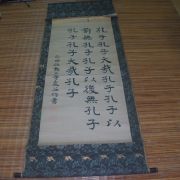 孔子孔子大哉孔子以
前無孔子孔子以後無孔子
孔子孔子大哉孔子